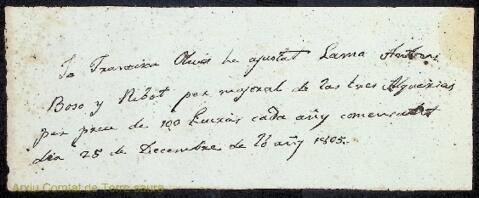 Jo Francisca Olives he ajustat Lamo Antoni
Boso y Ribot per majoral de las tres Alquerias
per preu de 190 lluiras cada añy comensant
dia 25 de Decembre de lo añy 1805.
Arxiu Comtat de Torre-saura